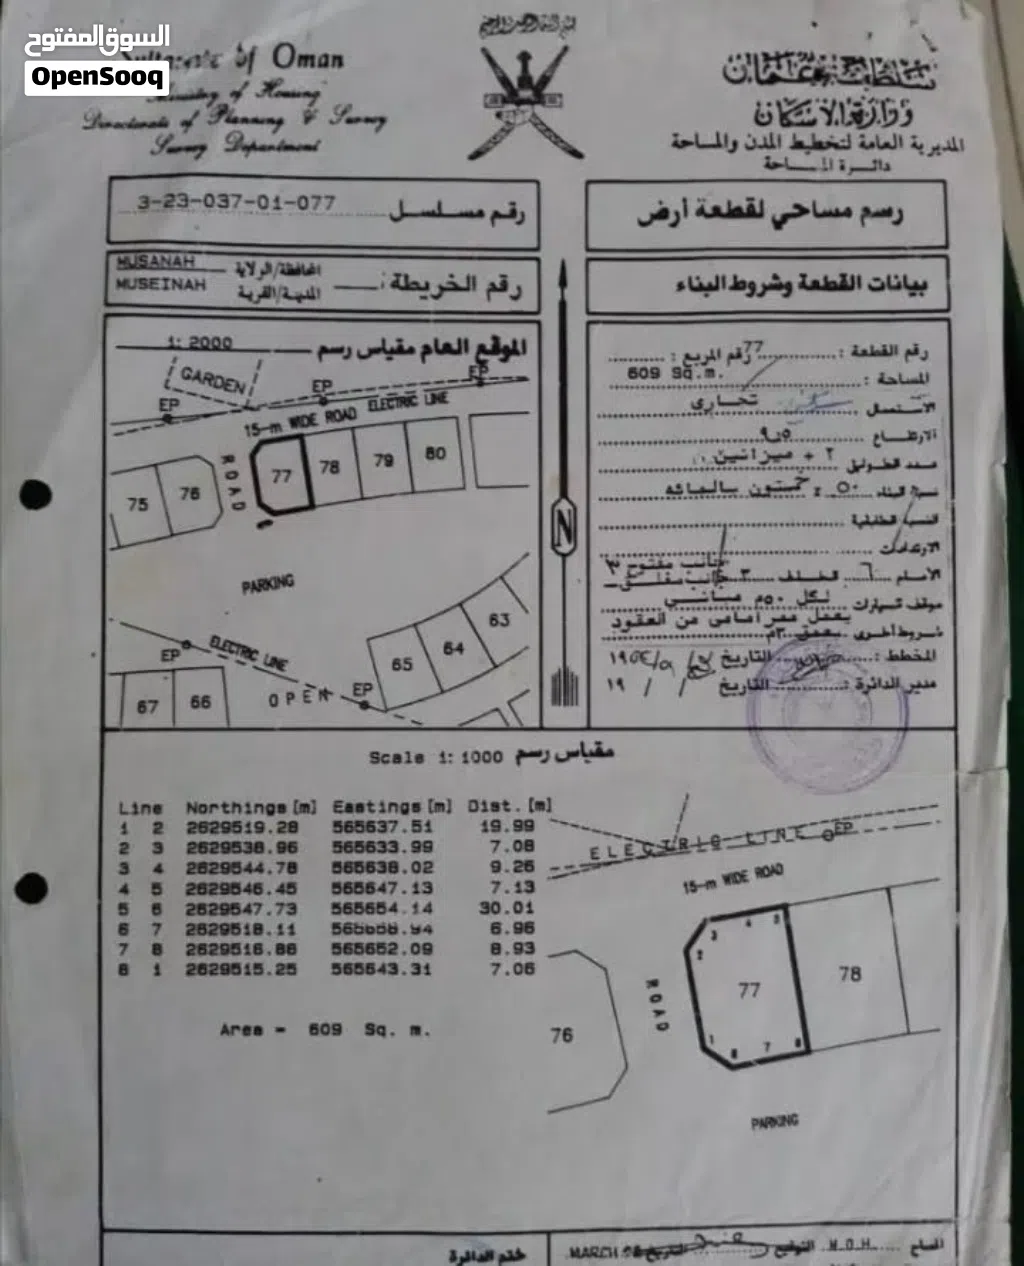 السوق المفتوح
OpenSooq
Sultanate of Oman
Ministry of Housing
Directorate of Planning & Survey
Survey Department
سلطنة عمان
وزارة الاسكان
المديرية العامة لتخطيط المدن والمساحة
دائرة المساحة
رقم مسلسل 3-23-037-01-077
رسم مساحي لقطعة أرض
MUSANAH المحافظة/الولاية
MUSEINAH المدينة/القرية
رقم الخريطة :
بيانات القطعة وشروط البناء
الموقع العام مقياس رسم 1: 2000
GARDEN
EP
EP
EP
15-m WIDE ROAD
ELECTRIC LINE
ROAD
75
76
77
78
79
80
6
PARKING
EP
ELECTRIC LINE
OPEN
EP
67
66
65
64
63
N
رقم القطعة : 77 رقم المربع :
المساحة : 609 Sq.m.
الاستعمال تجاري
الارتفاع ٩٫٥
عدد الطوابق ٢ + ميزانين
نسبة البناء ٥٠ % خمسون بالمائه
النسبة الطابقية
الارتدادات
جانب مفتوح ٣
الأمام ٦ الخلف ٣ جانب مغلق -
موقف سيارات لكل ٥٠م مباني
يعمل ممر أمامي من العقود
شروط أخرى بعمق ٣م
المخطط : التاريخ
مدير الدائرة : التاريخ / / ١٩
Scale 1: 1000 مقياس رسم
Line Northings [m] Eastings [m] Dist. [m]
1 2 2629519.28 565637.51 19.99
2 3 2629538.96 565633.99 7.08
3 4 2629544.78 565638.02 9.26
4 5 2629546.45 565647.13 7.13
5 6 2629547.73 565654.14 30.01
6 7 2629518.11 565658.94 6.96
7 8 2629516.88 565652.09 8.93
8 1 2629515.25 565643.31 7.06
Area = 609 Sq. m.
ELECTRIC LINE
EP
15-m WIDE ROAD
ROAD
76
77
78
PARKING
ختم الدائرة
المساح M.O.H. التوقيع التاريخ MARCH